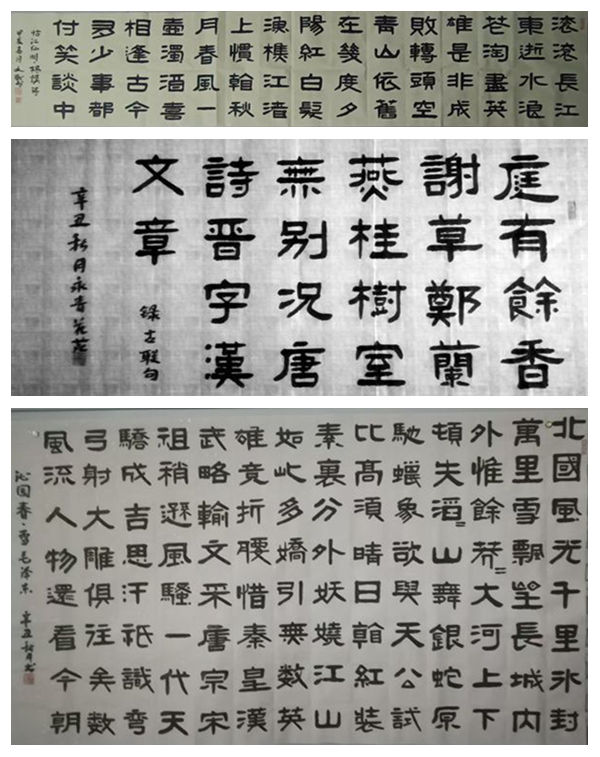 滚滚長江
東逝水浪
花淘盡英
雄是非成
敗轉頭空
青山依舊
在幾度夕
陽紅白髮
漁樵江渚
上慣看秋
月春風一
壺濁酒喜
相逢古今
多少事都
付笑談中
临江仙 明 杨慎
庭有餘香
謝草鄭蘭
燕桂樹室
無别況唐
詩晋字漢
文章
録古联句
辛丑秋月永青
北國風光千里冰封
萬里雪飄望長城内
外惟餘莽〻大河上下
頓失滔〻山舞銀蛇原
馳蠟象欲與天公試
比高須晴日看紅裝
素裹分外妖嬈江山
如此多嬌引無數英
雄竞折腰惜秦皇漢
武略輸文采唐宗宋
祖稍遜風騷一代天
驕成吉思汗祇識彎
弓射大雕俱往矣數
風流人物還看今朝
沁园春·雪 毛泽东 辛丑秋月书